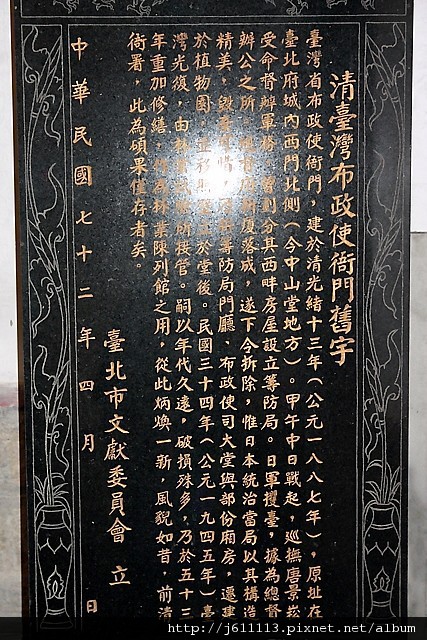 清臺灣布政使衙門舊宇
臺灣省布政使衙門，建於清光緒十三年（公元一八八七年），原址在
臺北府城內西門北側（今中山堂地方）。甲午中日戰起，巡撫唐景崧
受命督辦軍務，曾劃分其西畔房屋設立籌防局。日軍攫臺，據為總督
辦公之所。廈落成，遂下令拆除，惟日本統治當局以其構造
精美，毀惜，籌防局門廳、布政使司大堂與部份廂房，遷建
於植物園，並移立於堂後。民國三十四年（公元一九四五年）臺
灣光復，由林業試驗所接管。嗣以年代久遠，破損殊多，乃於五十三
年重加修繕，為林業陳列館之用，從此炳煥一新，風貌如昔 前清
衙署，此為碩果僅存者矣。
臺北市文獻委員會 立
中華民國七十二年四月 日
http://j611113.pixnet.net/album